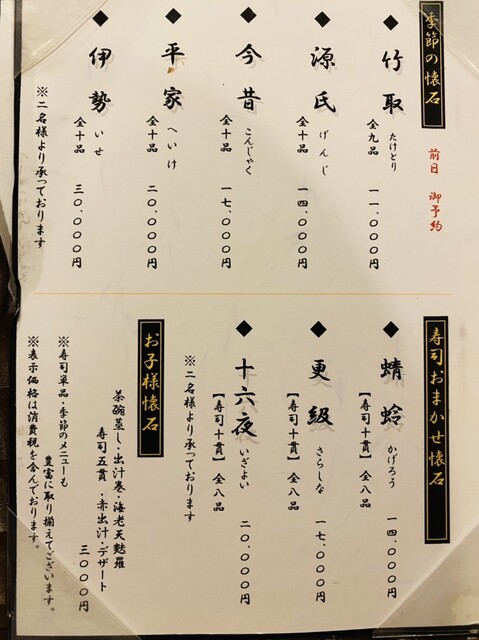 季節の懐石
前日 御予約
◆ 竹取 たけとり
全九品 一一、〇〇〇円
◆ 源氏 げんじ
全十品 一四、〇〇〇円
◆ 今昔 こんじゃく
全十品 一七、〇〇〇円
◆ 平家 へいけ
全十品 二〇、〇〇〇円
◆ 伊勢 いせ
全十品 三〇、〇〇〇円
※二名様より承っております
寿司おまかせ懐石
◆ 蜻蛉 かげろう
【寿司十貫】全八品 一四、〇〇〇円
◆ 更級 さらしな
【寿司十貫】全八品 一七、〇〇〇円
◆ 十六夜 いざよい
【寿司十貫】全八品 二〇、〇〇〇円
※二名様より承っております
お子様懐石
茶碗蒸し・出汁巻・海老天麩羅
寿司五貫・赤出汁・デザート
三〇〇〇円
※寿司単品・季節のメニューも
豊富に取り揃えてございます。
※表示価格は消費税を含んでおります。